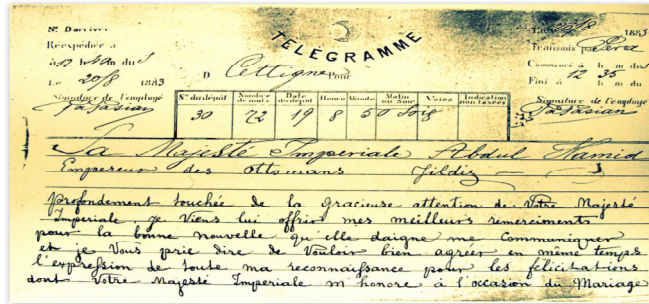 TÉLÉGRAMME
N° D'arrivée
Réexpédiée à
à 12 h 40 m du S
Le 20/8 1883
Signature de l'employé
Papasian
D Cettigne Pour
Le 20/8 1883
Transmis par Pera
Commencé à h m du
Fini à 12 35 h m du
Signature de l'employé
Papasian
N° du dépôt Nombre de mots Date du dépôt Heure Minute Matin ou Soir Voies Indication non taxées
30 72 19 8 50 Soir
Sa Majesté Imperiale Abdul Hamid
Empereur des Ottomans Jildiz
Profondement touchée de la gracieuse attention de Votre Majesté
Imperiale, je viens lui offrir mes meilleurs remerciments
pour la bonne nouvelle qu'elle daigne me communiquer
et je Vous prie dire de Vouloir bien agréer en même temps
l'expression de toute ma reconnaissance pour les félicitations
dont Votre Majesté Imperiale m'honore à l'occasion du Mariage